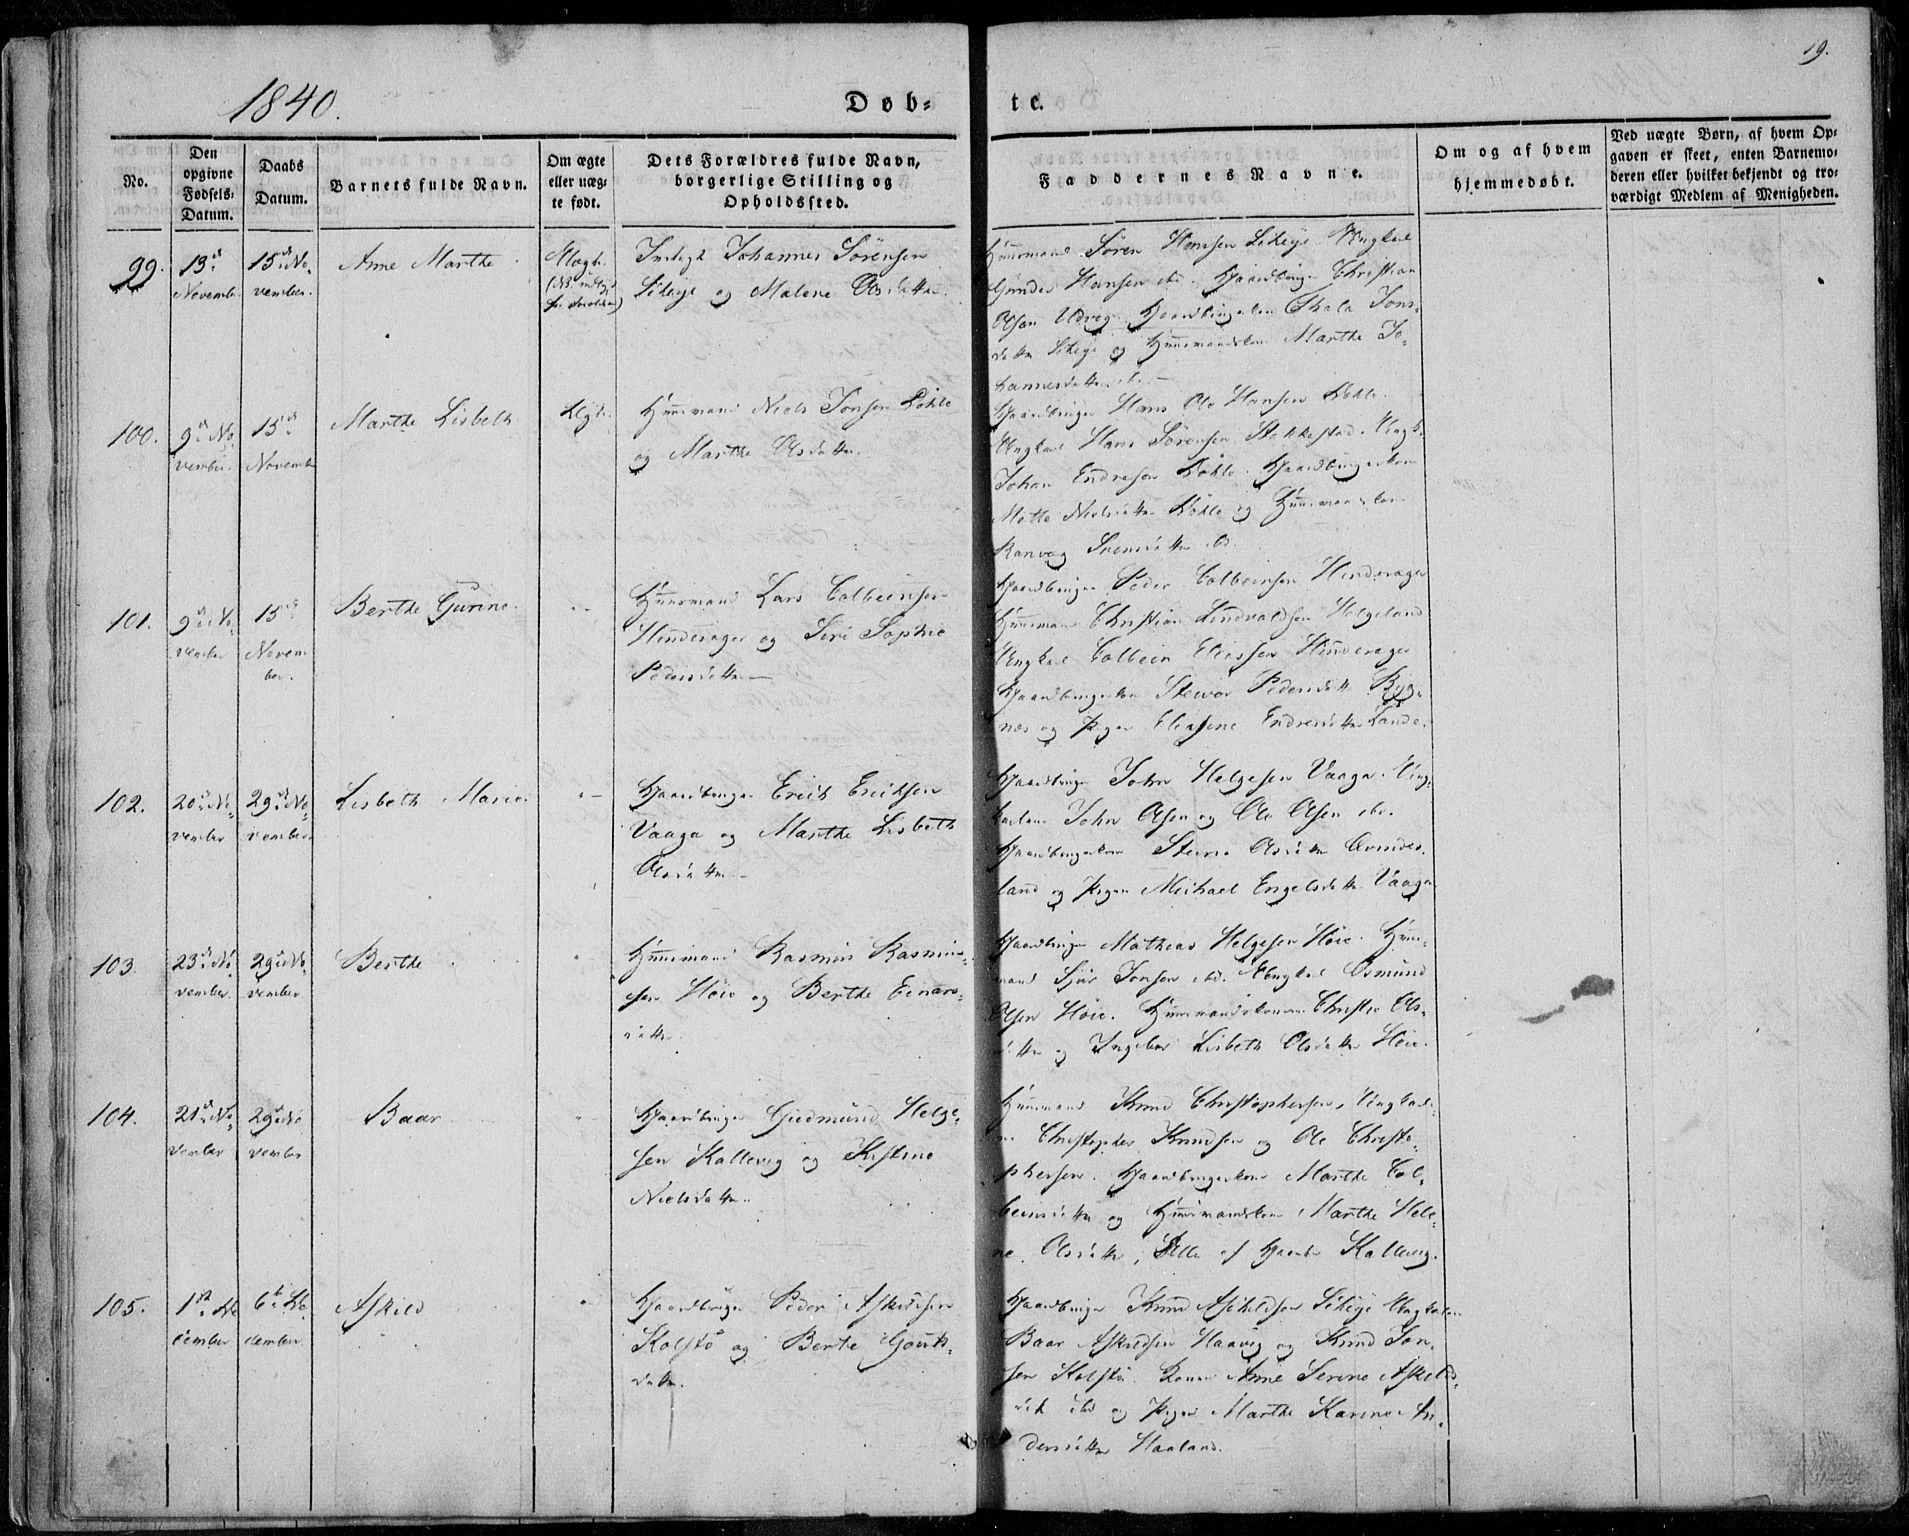 19.
1840.
Døb-
te.
No.
Den
opgivne
Fødsels-
Datum.
Daabs
Datum.
Barnets fulde Navn.
Om ægte
eller uæg-
te født.
Dets Forældres fulde Navn,
borgerlige Stilling og
Opholdssted.
Faddernes Navne.
Om og af hvem
hjemmedøbt.
Ved uægte Børn, af hvem Op-
gaven er skeet, enten Barnemo-
deren eller hvilket bekjendt og tro-
værdigt Medlem af Menigheden.
99.
13de
November
15de No-
vember.
Anne Marthe
Johannes Sørensen
og Malene Olsdatter
Huusmand Søren Hansen Ungkarl
Hansen ibd. Gaardbruger Christian
Olsen Gaardbrugerkone Jons-
datter og Huusmandskone Marthe Jo-
hannesdatter ibd.
100.
9de No-
vember.
15de
November
Marthe Lisbeth
Ægte
Huusmand Niels Jonsen
og Marthe Olsdatter
Gaardbruger Hans Ole Hansen
Ungkarl Hans Sørensen Stakkestad. Ungk.
Johan Endresen Gaardbrugerkone
Mette Nielsdatter og Huusmandskone
Ranvog Svensdatter ibd.
101.
9de No-
vember
15de
Novem-
ber.
Berthe Gurine.
Huusmand Lars Colbeinsen
Hinderager og Siri Sophie
Pedersdatter
Gaardbruger Peder Colbeinsen Hinderager
Huusmand Christian Helgeland
Ungkarl Colbein Eliassen Hinderager
Gaardbrugerkone Pedersdatter Byg-
næs og Pigen Eliasine Endresdatter Lande.
102.
20de No-
vember
29de No-
vember
Lisbeth Marie.
Gaardbruger Erick Ericksen
Vaaga og Marthe Lisbeth
Olsdatter
Gaardbruger John Helgesen Vaaga. Ung-
karlene John Olsen og Ole Olsen ibd.
Gaardbrugerkone Olsdatter
land og Pigen Michael Engelsdatter Vaaga
103.
23de No-
vember.
29de No-
vember
Berthe
Huusmand Rasmus Rasmus-
sen Høie og Berthe Einars-
datter.
Gaardbruger Mathias Helgesen Høie. Huus-
mand Sjur Jonsen ibd. Ungkarl Osmund
Olsen Høie. Huusmandskonerne Christie Ols-
datter og Ingebor Lisbeth Olsdatter Høie.
104.
21de No-
vember
29de No-
vember
Baar
Gaardbruger Gudmund Helge-
sen Kallevig og Kistine
Nielsdatter.
Huusmand Knud Christophersen, Ungkarle-
ne Christopher Knudsen og Ole Christo-
phersen. Gaardbrugerkone Marthe Col-
beinsdatter og Huusmandskone Marthe Hele-
ne Olsdatter, alle af Kallevig.
105.
1ste De-
cember
6te De-
cember.
Askild
Gaardbruger Peder Askildsen
Kolstø og Berthe
datter.
Gaardbruger Knud Askildsen Ungkarlene
Baar Askildsen Haavig og Knud Jon-
sen Kolstø. Konen Anne Serine Askilds-
datt. ibd og Pigen Marthe Karine An-
dersdatter Haaland.